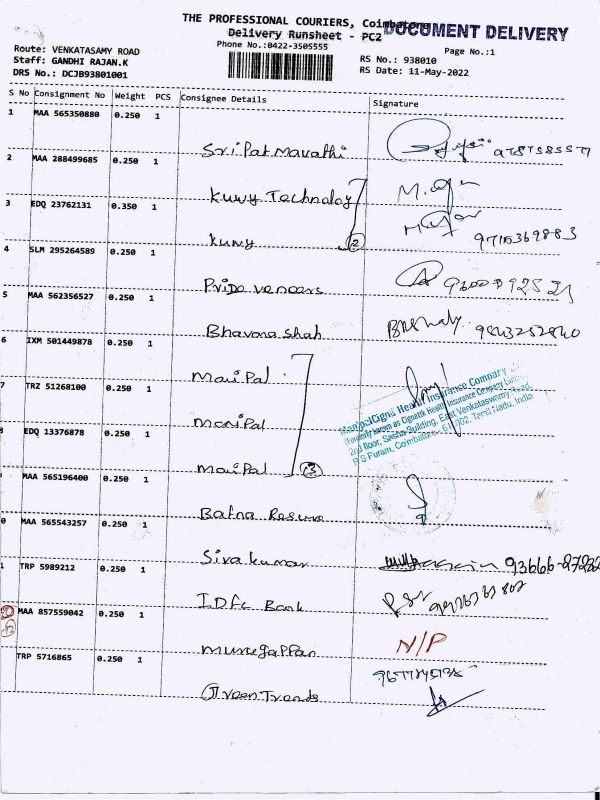 THE PROFESSIONAL COURIERS, Coimbatore
Delivery Runsheet - PC2
DOCUMENT DELIVERY
Phone No.:0422-3505555
Page No.:1
Route: VENKATASAMY ROAD
Staff: GANDHI RAJAN.K
DRS No.: DCJB93801001
RS No.: 938010
RS Date: 11-May-2022
S No Consignment No Weight PCS Consignee Details Signature
1 MAA 565350880 0.250 1
Sri Pat Mavathi
2 MAA 288499685 0.250 1
Kuwy Technology
3 EDQ 23762131 0.350 1
kuwy
2
4 SLM 295264589 0.250 1
Pride veneers
5 MAA 562356527 0.250 1
Bhavana shah
6 IXM 501449878 0.250 1
Mani Pal
7 TRZ 51268100 0.250 1
Mani Pal
EDQ 13376878 0.250 1
Mani Pal
13
ManipalCigna Health Insurance Company
(Formerly known as CignaTTK Health Insurance Company Limited)
2nd floor, Sesha Building, East Venkataswamy Road,
R S Puram, Coimbatore - 641 002, Tamil Nadu, India
MAA 565196400 0.250 1
Bafna
0 MAA 565543257 0.250 1
Siva kumar
1 TRP 5989212 0.250 1
IDFC Bank
MAA 857559042 0.250 1
Murugappan
N/P
TRP 5716865 0.250 1
Green Trends